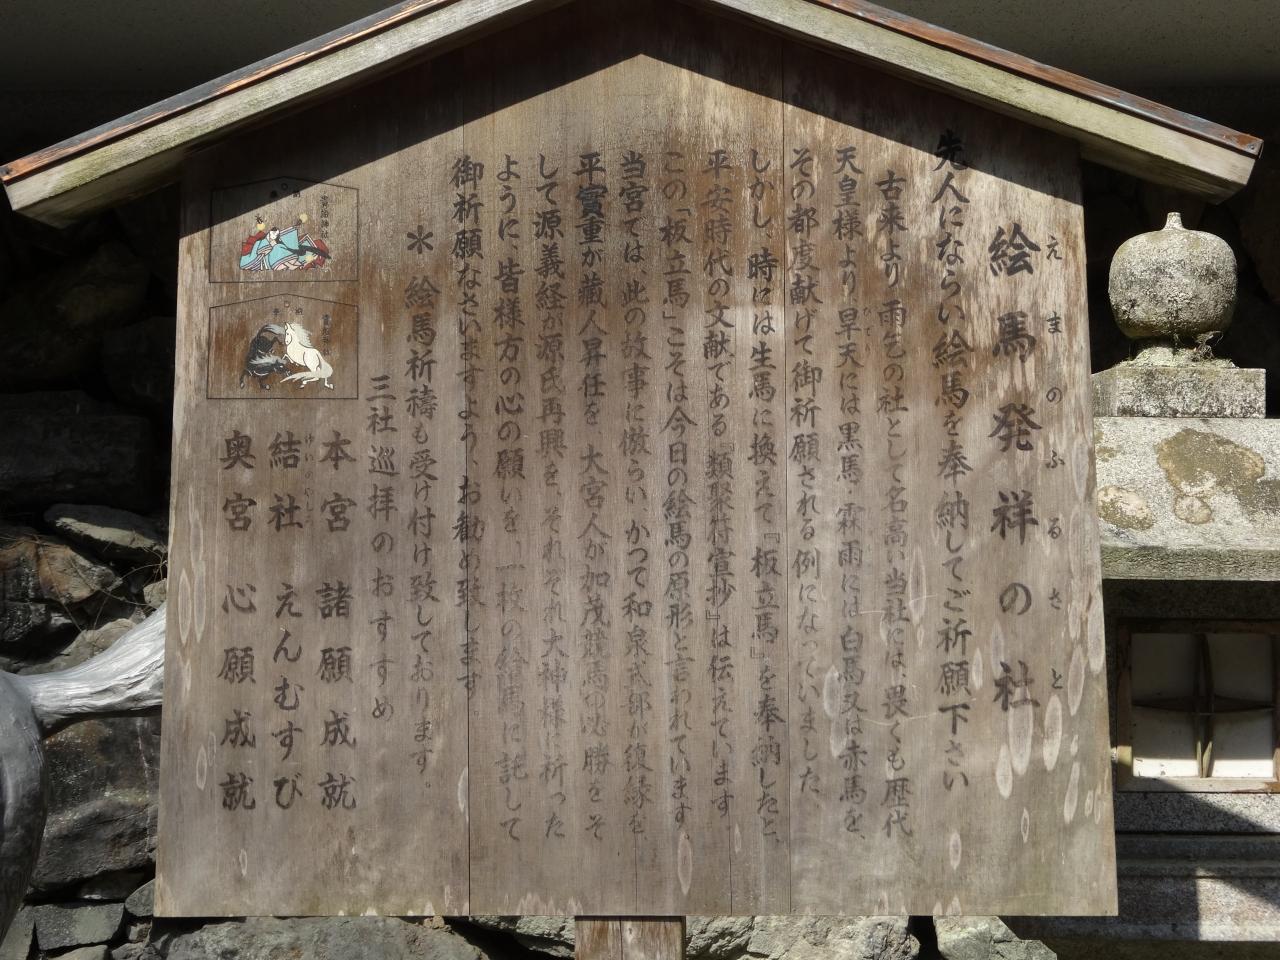 絵馬発祥の社
えまのふるさと
先人にならい絵馬を奉納してご祈願下さい
古来より 雨乞の社として名高い当社には、畏くも歴代
天皇様より、旱天には黒馬・霖雨には白馬又は赤馬を、
ひでり
その都度献げて御祈願される例になっていました、
しかし、時には生馬に換えて『板立馬』を奉納したと、
平安時代の文献である『類聚符宣抄』は伝えています。
この「板立馬」こそは今日の絵馬の原形と言われています。
当宮では、此の故事に倣らい、かつて和泉式部が復縁を、
平實重が蔵人昇任を 大宮人が加茂競馬の必勝をそ
して源義経が源氏再興を、それぞれ大神様に祈った
ように、皆様方の心の願いを、一枚の絵馬に託して
御祈願なさいますよう、お勧め致します。
＊ 絵馬祈禱も受け付け致しております。
三社巡拝のおすすめ
本宮 諸願成就
結社 えんむすび
奥宮 心願成就